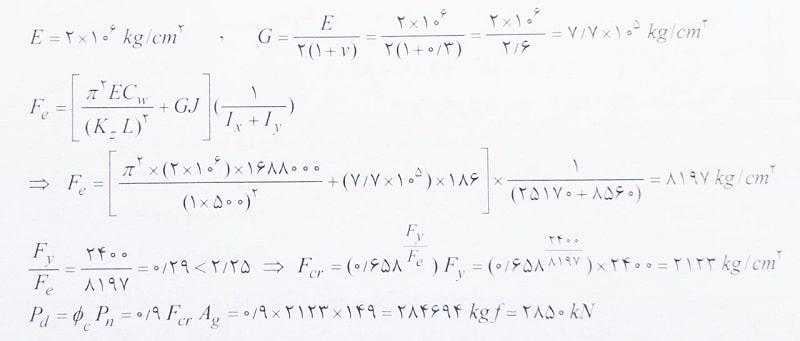 E = ۲×۱۰^۶ kg/cm^۲ , G = E / ۲(۱+ν) = ۲×۱۰^۶ / ۲(۱+۰/۳) = ۲×۱۰^۶ / ۲/۶ = ۷/۷×۱۰^۵ kg/cm^۲
F_e = [π^۲EC_w / (K_z L)^۲ + GJ](۱ / I_x + I_y)
⇒ F_e = [π^۲×(۲×۱۰^۶)×۱۶۸۸۰۰۰ / (۱×۵۰۰)^۲ + (۷/۷×۱۰^۵)×۱۸۶] × ۱ / (۲۵۱۷۰+۸۵۶۰) = ۸۱۹۷ kg/cm^۲
F_y / F_e = ۲۴۰۰ / ۸۱۹۷ = ۰/۲۹ < ۲/۲۵ ⇒ F_cr = (۰/۶۵۸^(F_y / F_e)) F_y = (۰/۶۵۸^(۲۴۰۰ / ۸۱۹۷))×۲۴۰۰ = ۲۱۲۳ kg/cm^۲
P_d = φ_c P_n = ۰/۹ F_cr A_g = ۰/۹×۲۱۲۳×۱۴۹ = ۲۸۴۶۹۴ kgf = ۲۸۵۰ kN